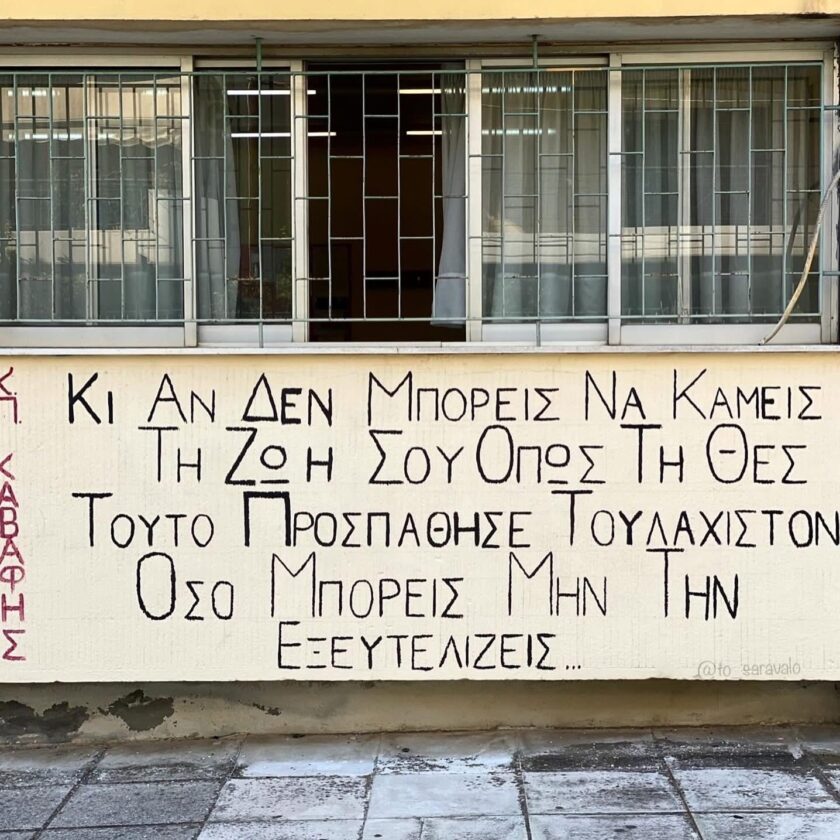 ΚΙ ΑΝ ΔΕΝ ΜΠΟΡΕΙΣ ΝΑ ΚΑΜΕΙΣ
ΤΗ ΖΩΗ ΣΟΥ ΟΠΩΣ ΤΗ ΘΕΣ
ΤΟΥΤΟ ΠΡΟΣΠΑΘΗΣΕ ΤΟΥΛΑΧΙΣΤΟΝ
ΟΣΟ ΜΠΟΡΕΙΣ ΜΗΝ ΤΗΝ
ΕΞΕΥΤΕΛΙΖΕΙΣ...
ΚΑΒΑΦΗΣ
@to_saravalo